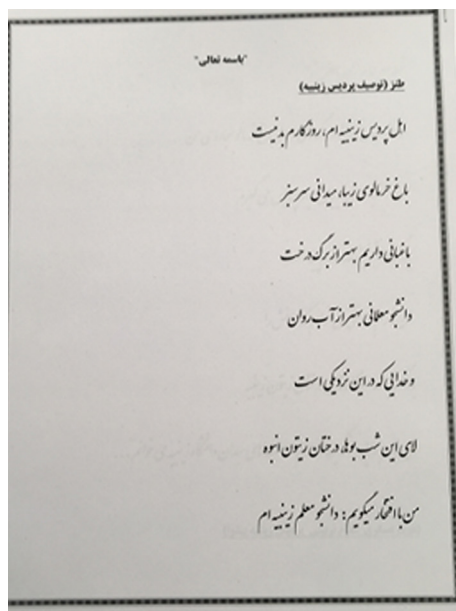 "باسمه تعالی"
طنز (توصیف پردیس زینبیه)
اهل پردیس زینبیه ام، روزگارم بد نیست
باغ خرمالوی زیبا، میدانی سرسبز
باغبانی داریم بهتر از برگ درخت
دانشجو معلمانی بهتر از آب روان
و خدایی که در این نزدیکی است
لای این شب بوها، درختان زیتون انبوه
من با افتخار میگویم: دانشجو معلم زینبیه ام